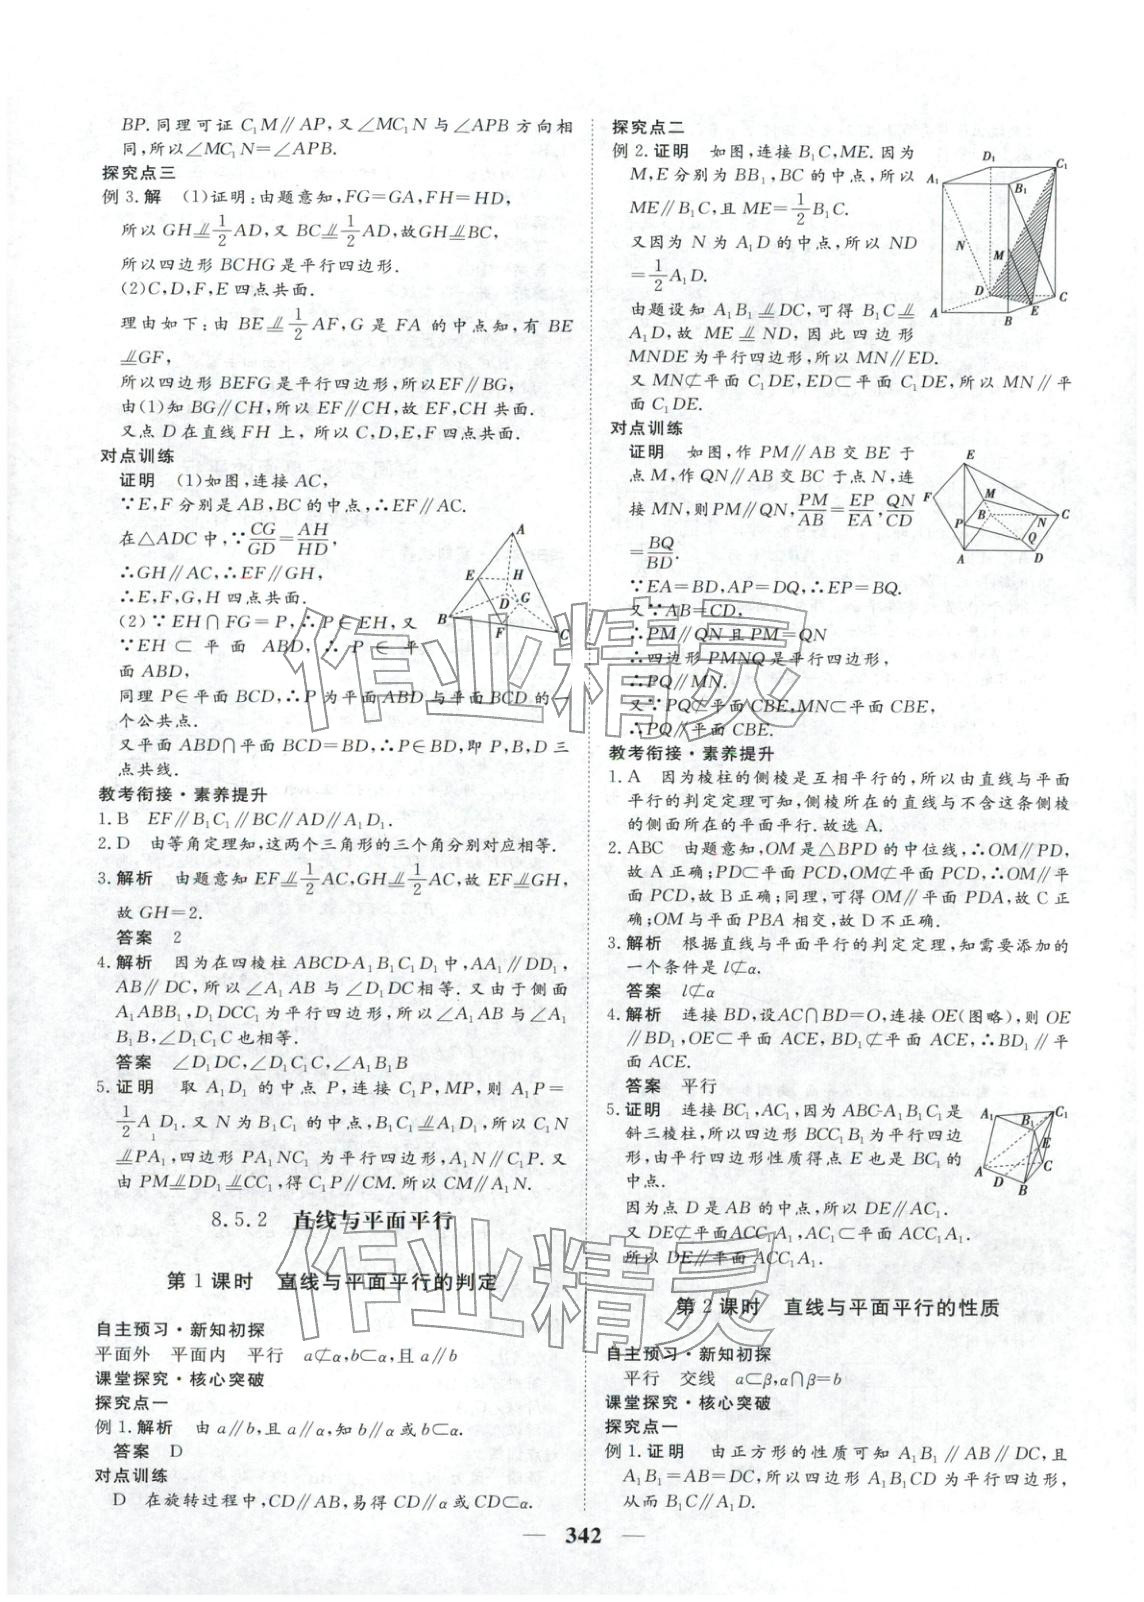 BP.同理可证 C₁M∥AP,又∠MC₁N与∠APB方向相
同,所以∠MC₁N=∠APB.
探究点三
例3.解 (1)证明:由题意知,FG=GA,FH=HD,
所以GH⫽1/2AD,又 BC⫽1/2AD,故GH⫽BC,
所以四边形BCHG是平行四边形.
(2)C,D,F,E四点共面.
理由如下:由 BE⫽1/2AF,G是FA的中点知,有BE
⫽GF,
所以四边形BEFG是平行四边形,所以EF∥BG,
由(1)知BG∥CH,所以EF∥CH,故EF,CH共面.
又点D在直线FH上,所以C,D,E,F四点共面.
对点训练
证明 (1)如图,连接AC,
∵E,F分别是AB,BC的中点,∴EF∥AC.
在△ADC中,∵CG/GD=AH/HD,
∴GH∥AC,∴EF∥GH,
∴E,F,G,H四点共面.
(2)∵EH∩FG=P,∴P∈EH,又
∵EH⊂平面 ABD,∴P∈平
面ABD,
同理P∈平面BCD,∴P为平面ABD与平面BCD的一
个公共点.
又平面ABD∩平面BCD=BD,∴P∈BD,即P,B,D三
点共线.
A
E
H
D
G
B
F
C
教考衔接·素养提升
1.B EF∥B₁C₁∥BC∥AD∥A₁D₁.
2.D 由等角定理知,这两个三角形的三个角分别对应相等.
3.解析 由题意知EF⫽1/2AC,GH⫽1/2AC,故EF⫽GH,
故GH=2.
答案 2
4.解析 因为在四棱柱ABCD-A₁B₁C₁D₁中,AA₁∥DD₁,
AB∥DC,所以∠A₁AB与∠D₁DC相等.又由于侧面
A₁ABB₁,D₁DCC₁为平行四边形,所以∠A₁AB与∠A₁
B₁B,∠D₁C₁C也相等.
答案 ∠D₁DC,∠D₁C₁C,∠A₁B₁B
5.证明 取A₁D₁的中点P,连接C₁P,MP,则A₁P=
1/2A₁D₁.又N为B₁C₁的中点,B₁C₁⫽A₁D₁,所以C₁N
⫽PA₁,四边形PA₁NC₁为平行四边形,A₁N∥C₁P.又
由PM⫽DD₁⫽CC₁,得C₁P∥CM.所以CM∥A₁N.
8.5.2 直线与平面平行
第1课时 直线与平面平行的判定
自主预习·新知初探
平面外 平面内 平行 a⊄α,b⊂α,且a∥b
课堂探究·核心突破
探究点一
例1.解析 由a∥b,且a∥α,知b∥α或b⊂α.
答案 D
对点训练
D 在旋转过程中,CD∥AB,易得CD∥α或CD⊂α.
探究点二
例2.证明 如图,连接B₁C,ME.因为
M,E分别为BB₁,BC的中点,所以
ME∥B₁C,且ME=1/2B₁C.
又因为N为A₁D的中点,所以ND
=1/2A₁D.
由题设知A₁B₁⫽DC,可得B₁C⫽
A₁D,故ME⫽ND,因此四边形
MNDE为平行四边形,所以MN∥ED.
又MN⊄平面C₁DE,ED⊂平面C₁DE,所以MN∥平
面C₁DE.
D₁
C₁
A₁
B₁
N
M
D
C
A
E
B
对点训练
证明 如图,作PM∥AB交BE于
点M,作QN∥AB交BC于点N,连
接MN,则PM∥QN,PM/AB=EP/EA,QN/CD
=BQ/BD.
∵EA=BD,AP=DQ,∴EP=BQ.
又∵AB=CD,
∴PM∥QN且PM=QN
∴四边形PMNQ是平行四边形,
∴PQ∥MN.
又∵PQ⊄平面CBE,MN⊂平面CBE,
∴PQ∥平面CBE.
E
F
M
B
N
C
P
Q
A
D
教考衔接·素养提升
1.A 因为棱柱的侧棱是互相平行的,所以由直线与平面
平行的判定定理可知,侧棱所在的直线与不含这条侧棱
的侧面所在的平面平行.故选A.
2.ABC 由题意知,OM是△BPD的中位线,∴OM∥PD,
故A正确;PD⊂平面PCD,OM⊄平面PCD,∴OM∥平
面PCD,故B正确;同理,可得OM∥平面PDA,故C正
确;OM与平面PBA相交,故D不正确.
3.解析 根据直线与平面平行的判定定理,知需要添加的
一个条件是l⊄α.
答案 l⊄α
4.解析 连接BD,设AC∩BD=O,连接OE(图略),则OE
∥BD₁,OE⊂平面ACE,BD₁⊄平面ACE,∴BD₁∥平
面ACE.
答案 平行
5.证明 连接BC₁,AC₁,因为ABC-A₁B₁C₁是
斜三棱柱,所以四边形BCC₁B₁为平行四边
形,由平行四边形性质得点E也是BC₁的
中点.
因为点D是AB的中点,所以DE∥AC₁.
又DE⊄平面ACC₁A₁,AC₁⊂平面ACC₁A₁,
所以DE∥平面ACC₁A₁.
A₁
B₁
C₁
E
C
A
D
B
第2课时 直线与平面平行的性质
自主预习·新知初探
平行 交线 a⊂β,α∩β=b
课堂探究·核心突破
探究点一
例1.证明 由正方形的性质可知A₁B₁∥AB∥DC,且
A₁B₁=AB=DC,所以四边形A₁B₁CD为平行四边形,
从而B₁C∥A₁D.
作业精灵
作业精灵
— 342 —